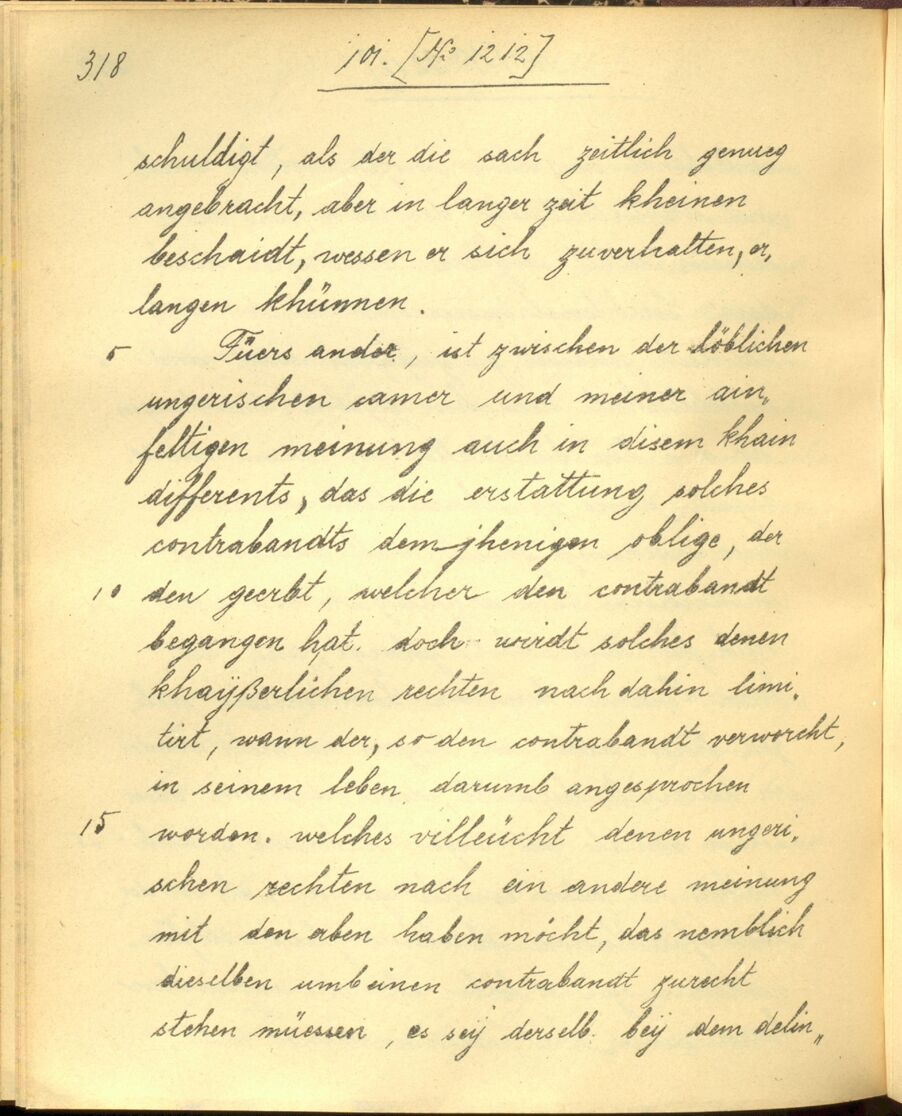 318
101. [No 1212]
schuldigt, als der die sach zeitlich genueg
angebracht, aber in langer zeit kheinen
beschaidt, wessen er sich zuverhalten, er„
langen khünnen.
5 Füers ander, ist zwischen der löblichen
ungerischen camer und meiner ain„
feltigen meinung auch in disem khain
differents, das die erstattung solches
contrabandts demjhenigen oblige, der
10 den geerbt, welcher den contrabandt
begangen hat. doch wirdt solches denen
khaÿßerlichen rechten nach dahin limi„
tirt, wann der, so den contrabandt verworcht,
in seinem leben darumb angesprochen
15 worden. welches villeücht denen ungeri„
schen rechten nach ein andere meinung
mit den erben haben möcht, das nemblich
dieselben umb einen contrabandt zurecht
stehen müessen, es seÿ derselb beÿ dem delin„